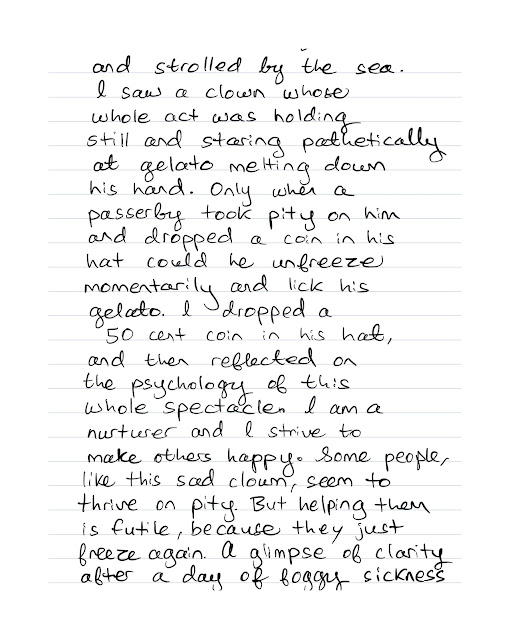 and strolled by the sea.
I saw a clown whose
whole act was holding
still and staring pathetically
at gelato melting down
his hand. Only when a
passerby took pity on him
and dropped a coin in his
hat could he unfreeze
momentarily and lick his
gelato. I dropped a
50 cent coin in his hat,
and then reflected on
the psychology of this
whole spectacle. I am a
nurturer and I strive to
make others happy. Some people,
like this sad clown, seem to
thrive on pity. But helping them
is futile, because they just
freeze again. A glimpse of clarity
after a day of foggy sickness